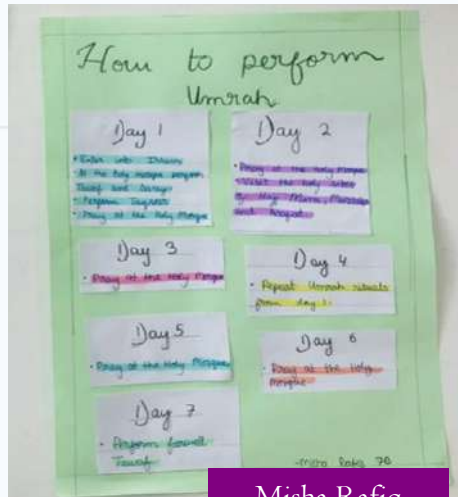 How to perform
Umrah
Day 1
• Enter into Ihram
• At the holy mosque perform
Tawaf and
• Perform
• Pray at the Holy Mosque
Day 2
• Pray at the Holy Mosque
• Visit the holy sites
of Hajj Mina,
and Arafat
Day 3
• Pray at the Holy Mosque
Day 4
• Repeat Umrah rituals
from day 1.
Day 5
• Pray at the Holy Mosque
Day 6
• Pray at the Holy
Mosque
Day 7
• Perform
Tawaf
-Misha Rafiq
Misha Rafiq